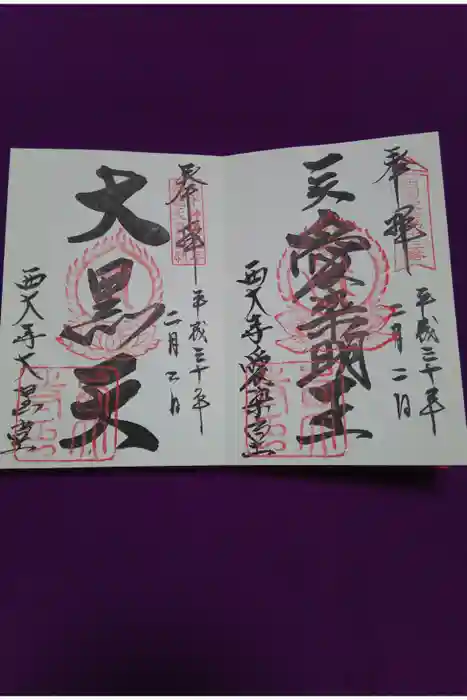 奉拝
平成三十年
二月二日
愛染明王
西大寺愛染堂
奉拝
平成三十年
二月二日
大黒天
西大寺大黒堂